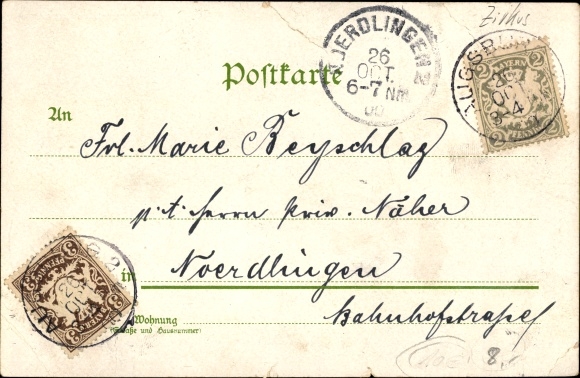 Zirkus
NOERDLINGEN 2
26
OCT.
6-7 NM
00
AUGSBURG
26
OCT
3-4
BAYERN
2 2
PFENNIG
Postkarte
An
Frl. Marie Beyschlag
p. A. Herrn Priv. Näher
in Noerdlingen
Wohnung
(Straße und Hausnummer)
Bahnhofstraße
BAYERN
3 3
PFENNIG
26
8.